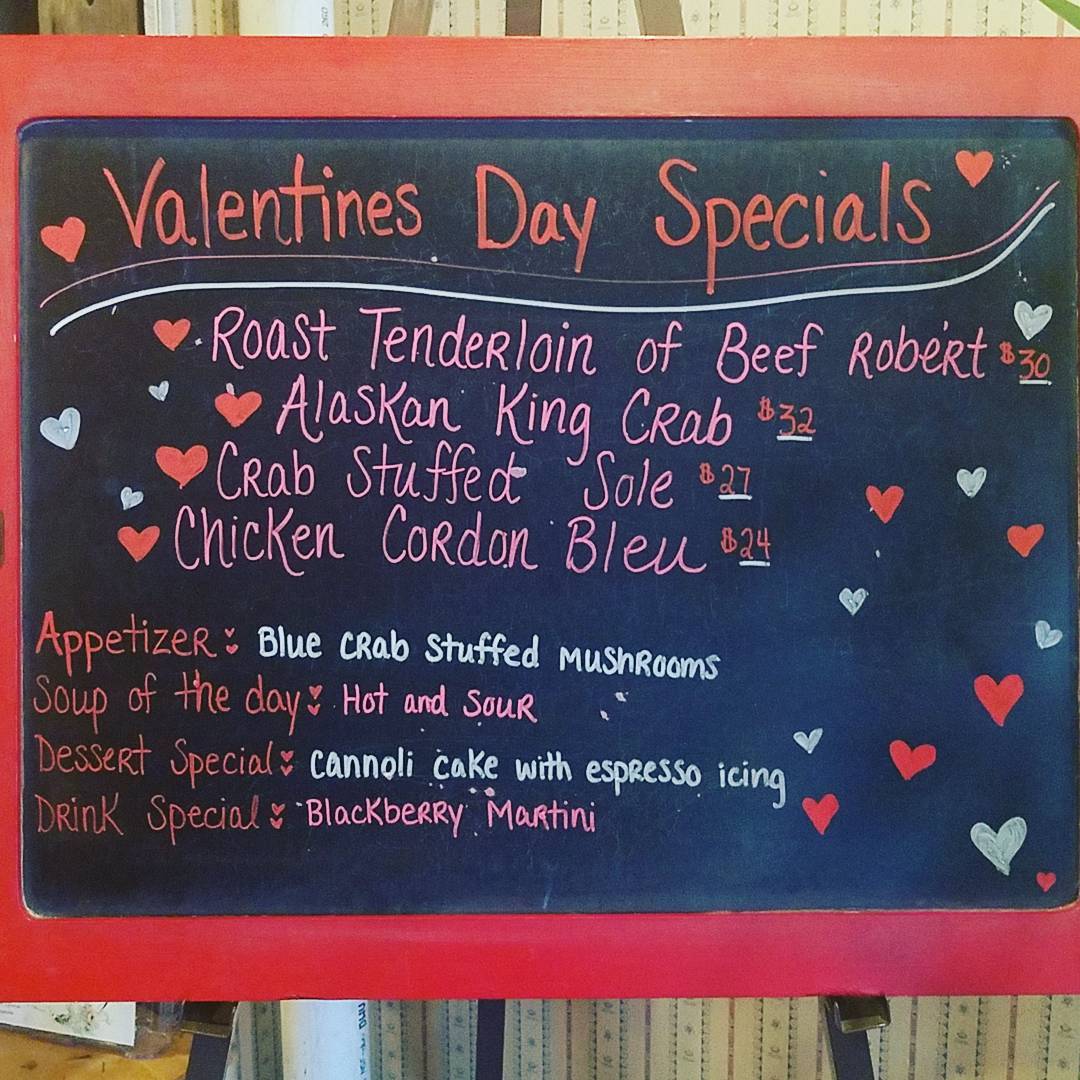 Valentines Day Specials
Roast Tenderloin of Beef Robert $30
Alaskan King Crab $32
Crab Stuffed Sole $27
Chicken Cordon Bleu $24
Appetizer: Blue Crab Stuffed Mushrooms
Soup of the day: Hot and Sour
Dessert Special: Cannoli cake with espresso icing
Drink Special: Blackberry Martini